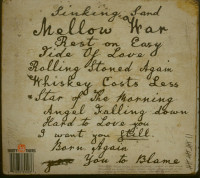 Sinking Sand
Mellow War
Rest on Easy
Tide Of Love
Rolling Stoned Again
Whiskey Costs Less
*Star of The Morning
Angel Falling down
Hard to Love you
I want you Still
Born Again
You to Blame